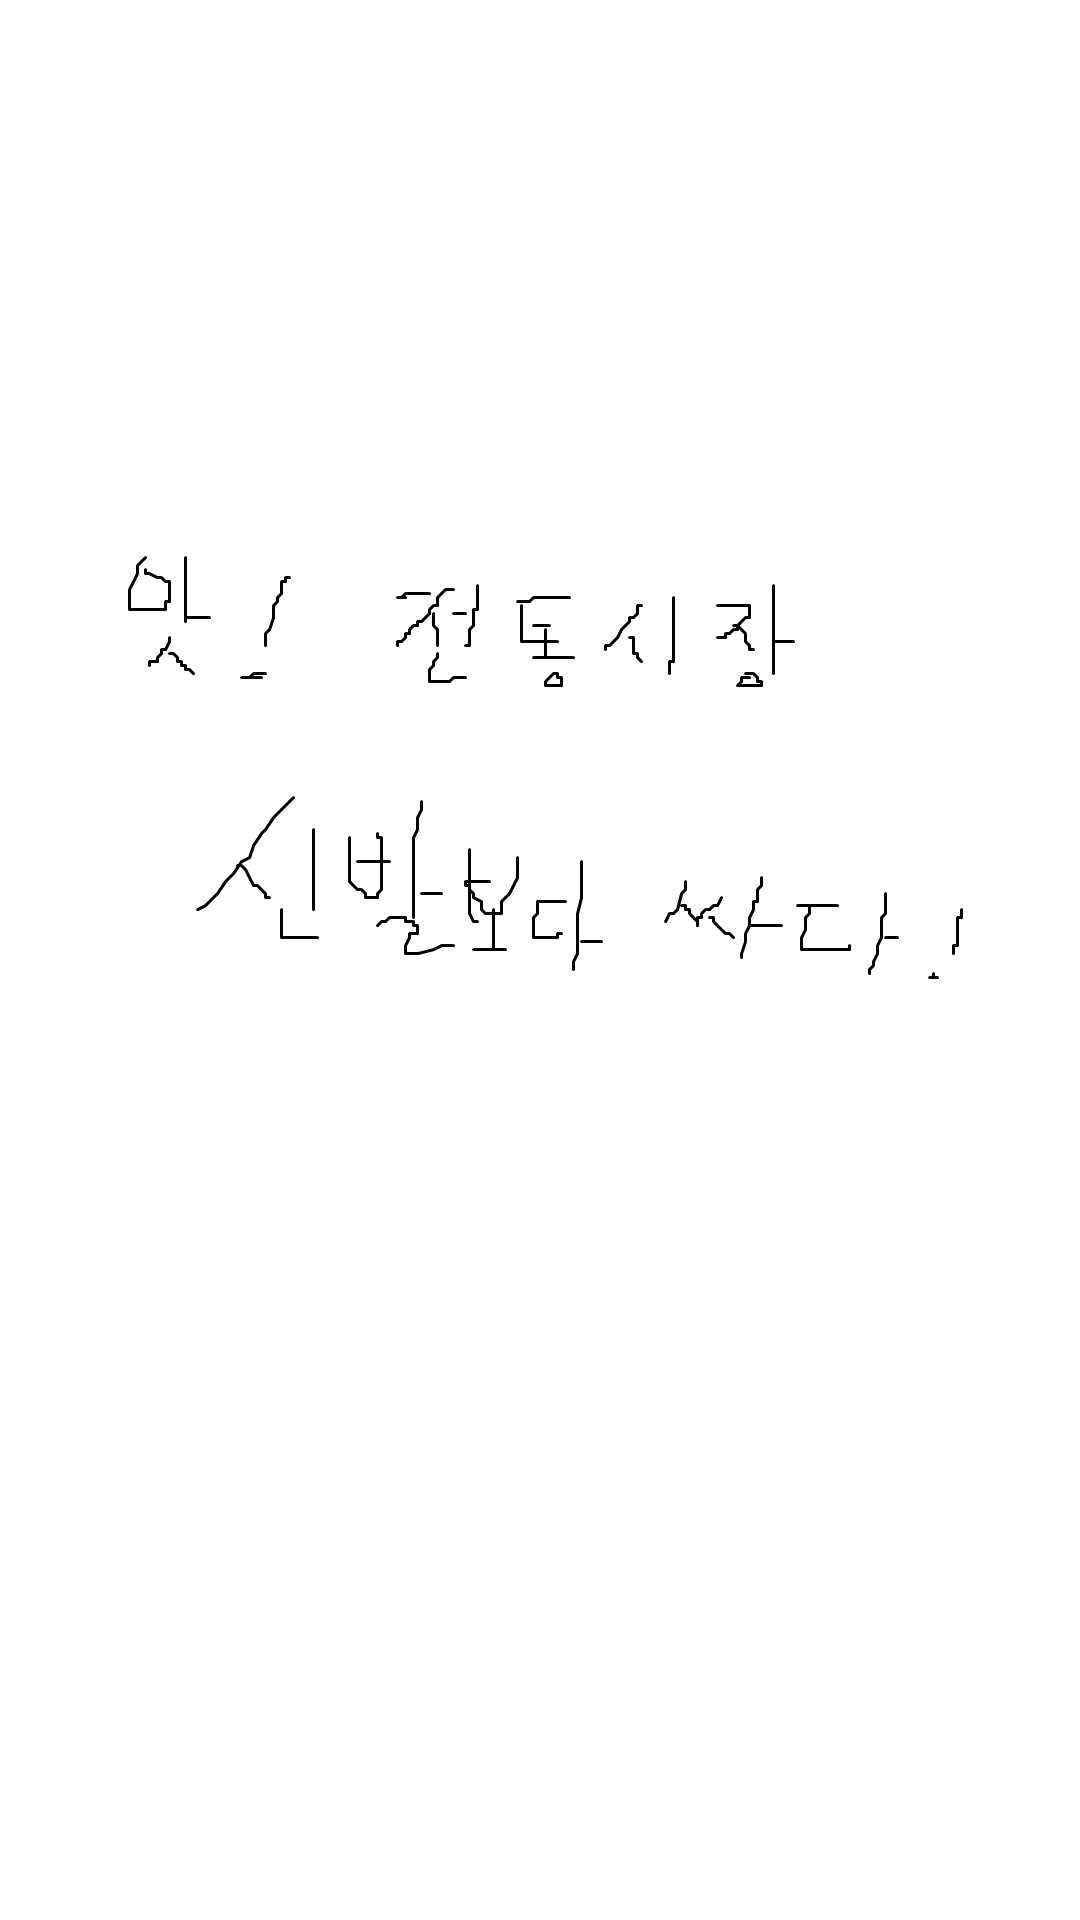 앗! 전통시장
신발보다 싸다!